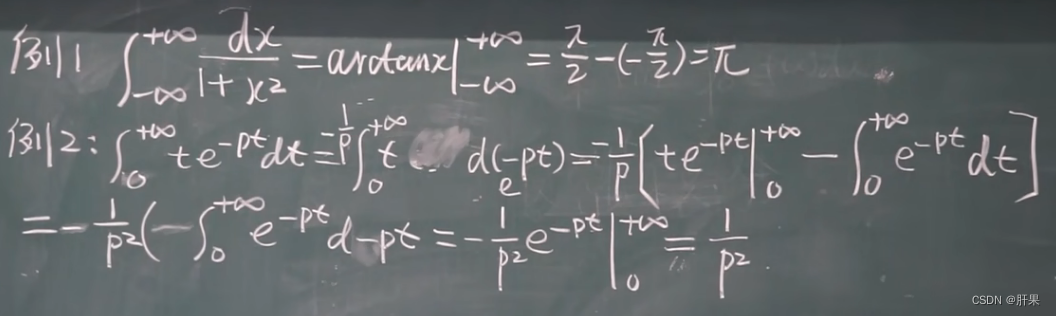 例1 ∫_{-∞}^{+∞} dx/(1+x²) = arctanx|_{-∞}^{+∞} = π/2 - (-π/2) = π
例2: ∫_0^{+∞} te^{-pt}dt = -1/p ∫_0^{+∞} t d(e^{-pt}) = -1/p [te^{-pt}|_0^{+∞} - ∫_0^{+∞} e^{-pt}dt]
= -1/p² (-∫_0^{+∞} e^{-pt} d-pt = -1/p² e^{-pt}|_0^{+∞} = 1/p².
CSDN @肝果